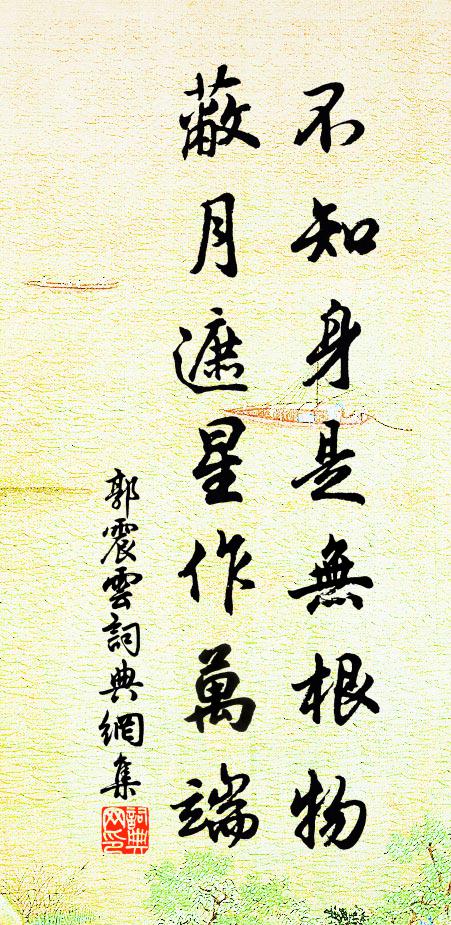 不知身是無根物
蔽月遮星作萬端
郭震雲詞典網集
詞典網印